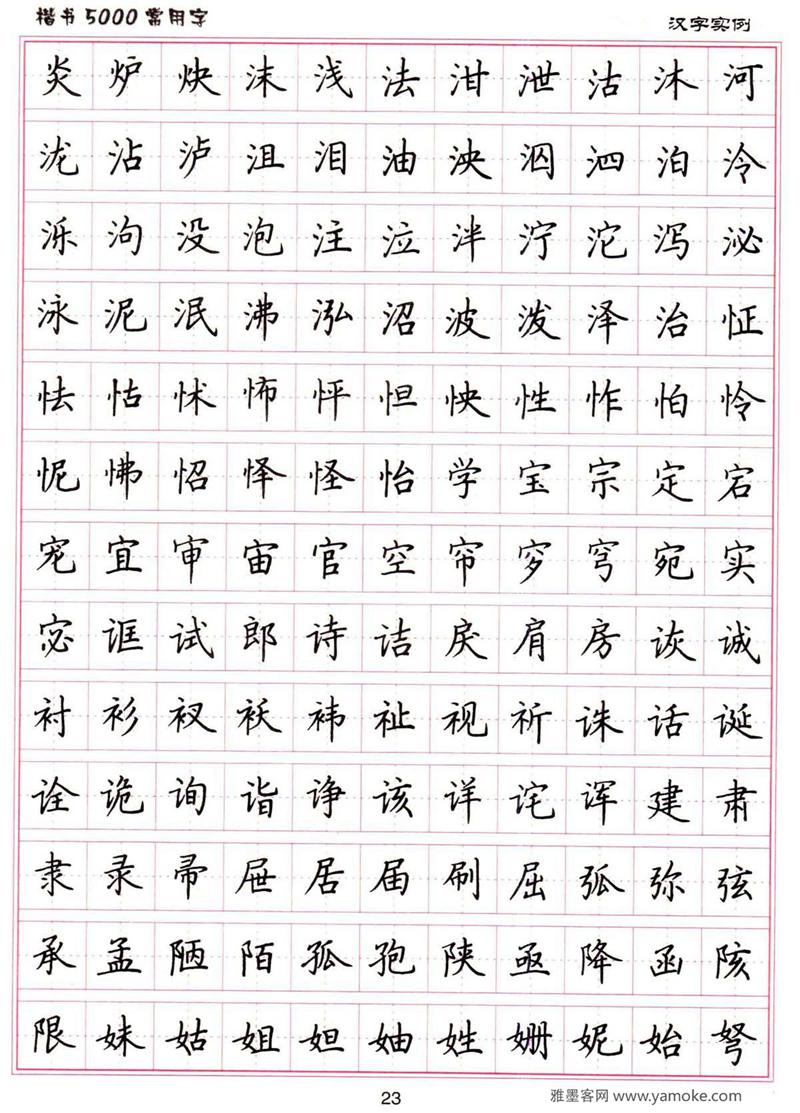 楷书5000常用字
汉字实例
炎炉炔沫浅法泔泄沽沐河
泷沾泸沮泪油泱泅泗泊泠
泺沟没泡注泣泮泞沱泻泌
泳泥泯沸泓沼波泼泽治怔
怯怙怵怖怦怛怏性怍怕怜
怩怫怊怿怪怡学宝宗定宕
宠宜审宙官空帘穸穹宛实
宓诓试郎诗诘戾肩房诙诚
衬衫衩袄祎祉视祈诛话诞
诠诡询诣诤该详诧诨建肃
隶录帚屉居届刷屈弧弥弦
承孟陋陌孤孢陕亟降函陔
限妹姑姐妲妯姓姗妮始弩
23
雅墨客网 www.yamoke.com